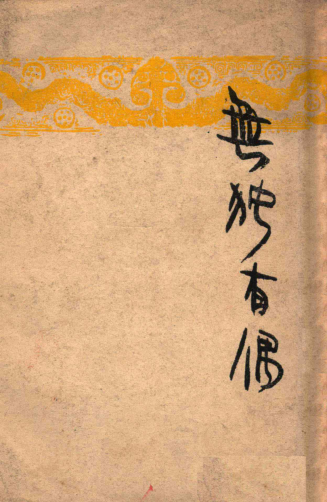 無独有偶